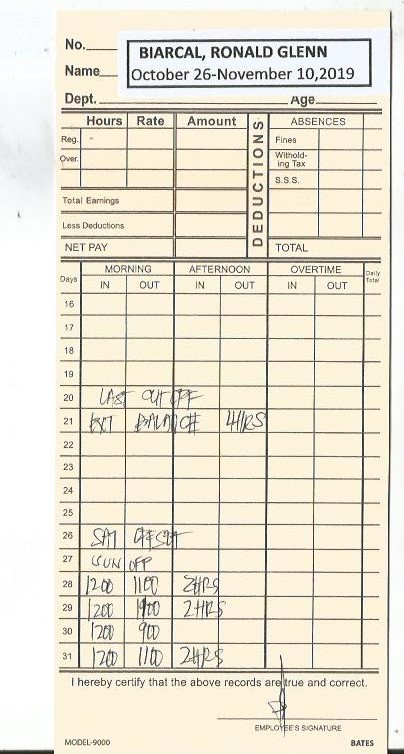 No.
BIARCAL, RONALD GLENN
Name
October 26-November 10,2019
Dept. Age
Hours Rate Amount DEDUCTIONS ABSENCES
Reg. Fines
Over. Withold-
ing Tax
S.S.S.
Total Earnings
Less Deductions
NET PAY TOTAL
Days MORNING AFTERNOON OVERTIME Daily Total
IN OUT IN OUT IN OUT
16
17
18
19
20 LAST OUT OFF
21 BALANCE 4HRS
22
23
24
25
26 SAT
27 SUN OFF
28 1200 1100 2HRS
29 1200 2HRS
30 1200 900
31 1200 1100 2HRS
I hereby certify that the above records are true and correct.
EMPLOYEE'S SIGNATURE
MODEL-9000 BATES